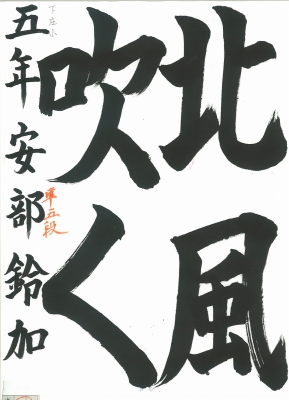 北風
吹く
五年安部鈴加
準五段
下庄小